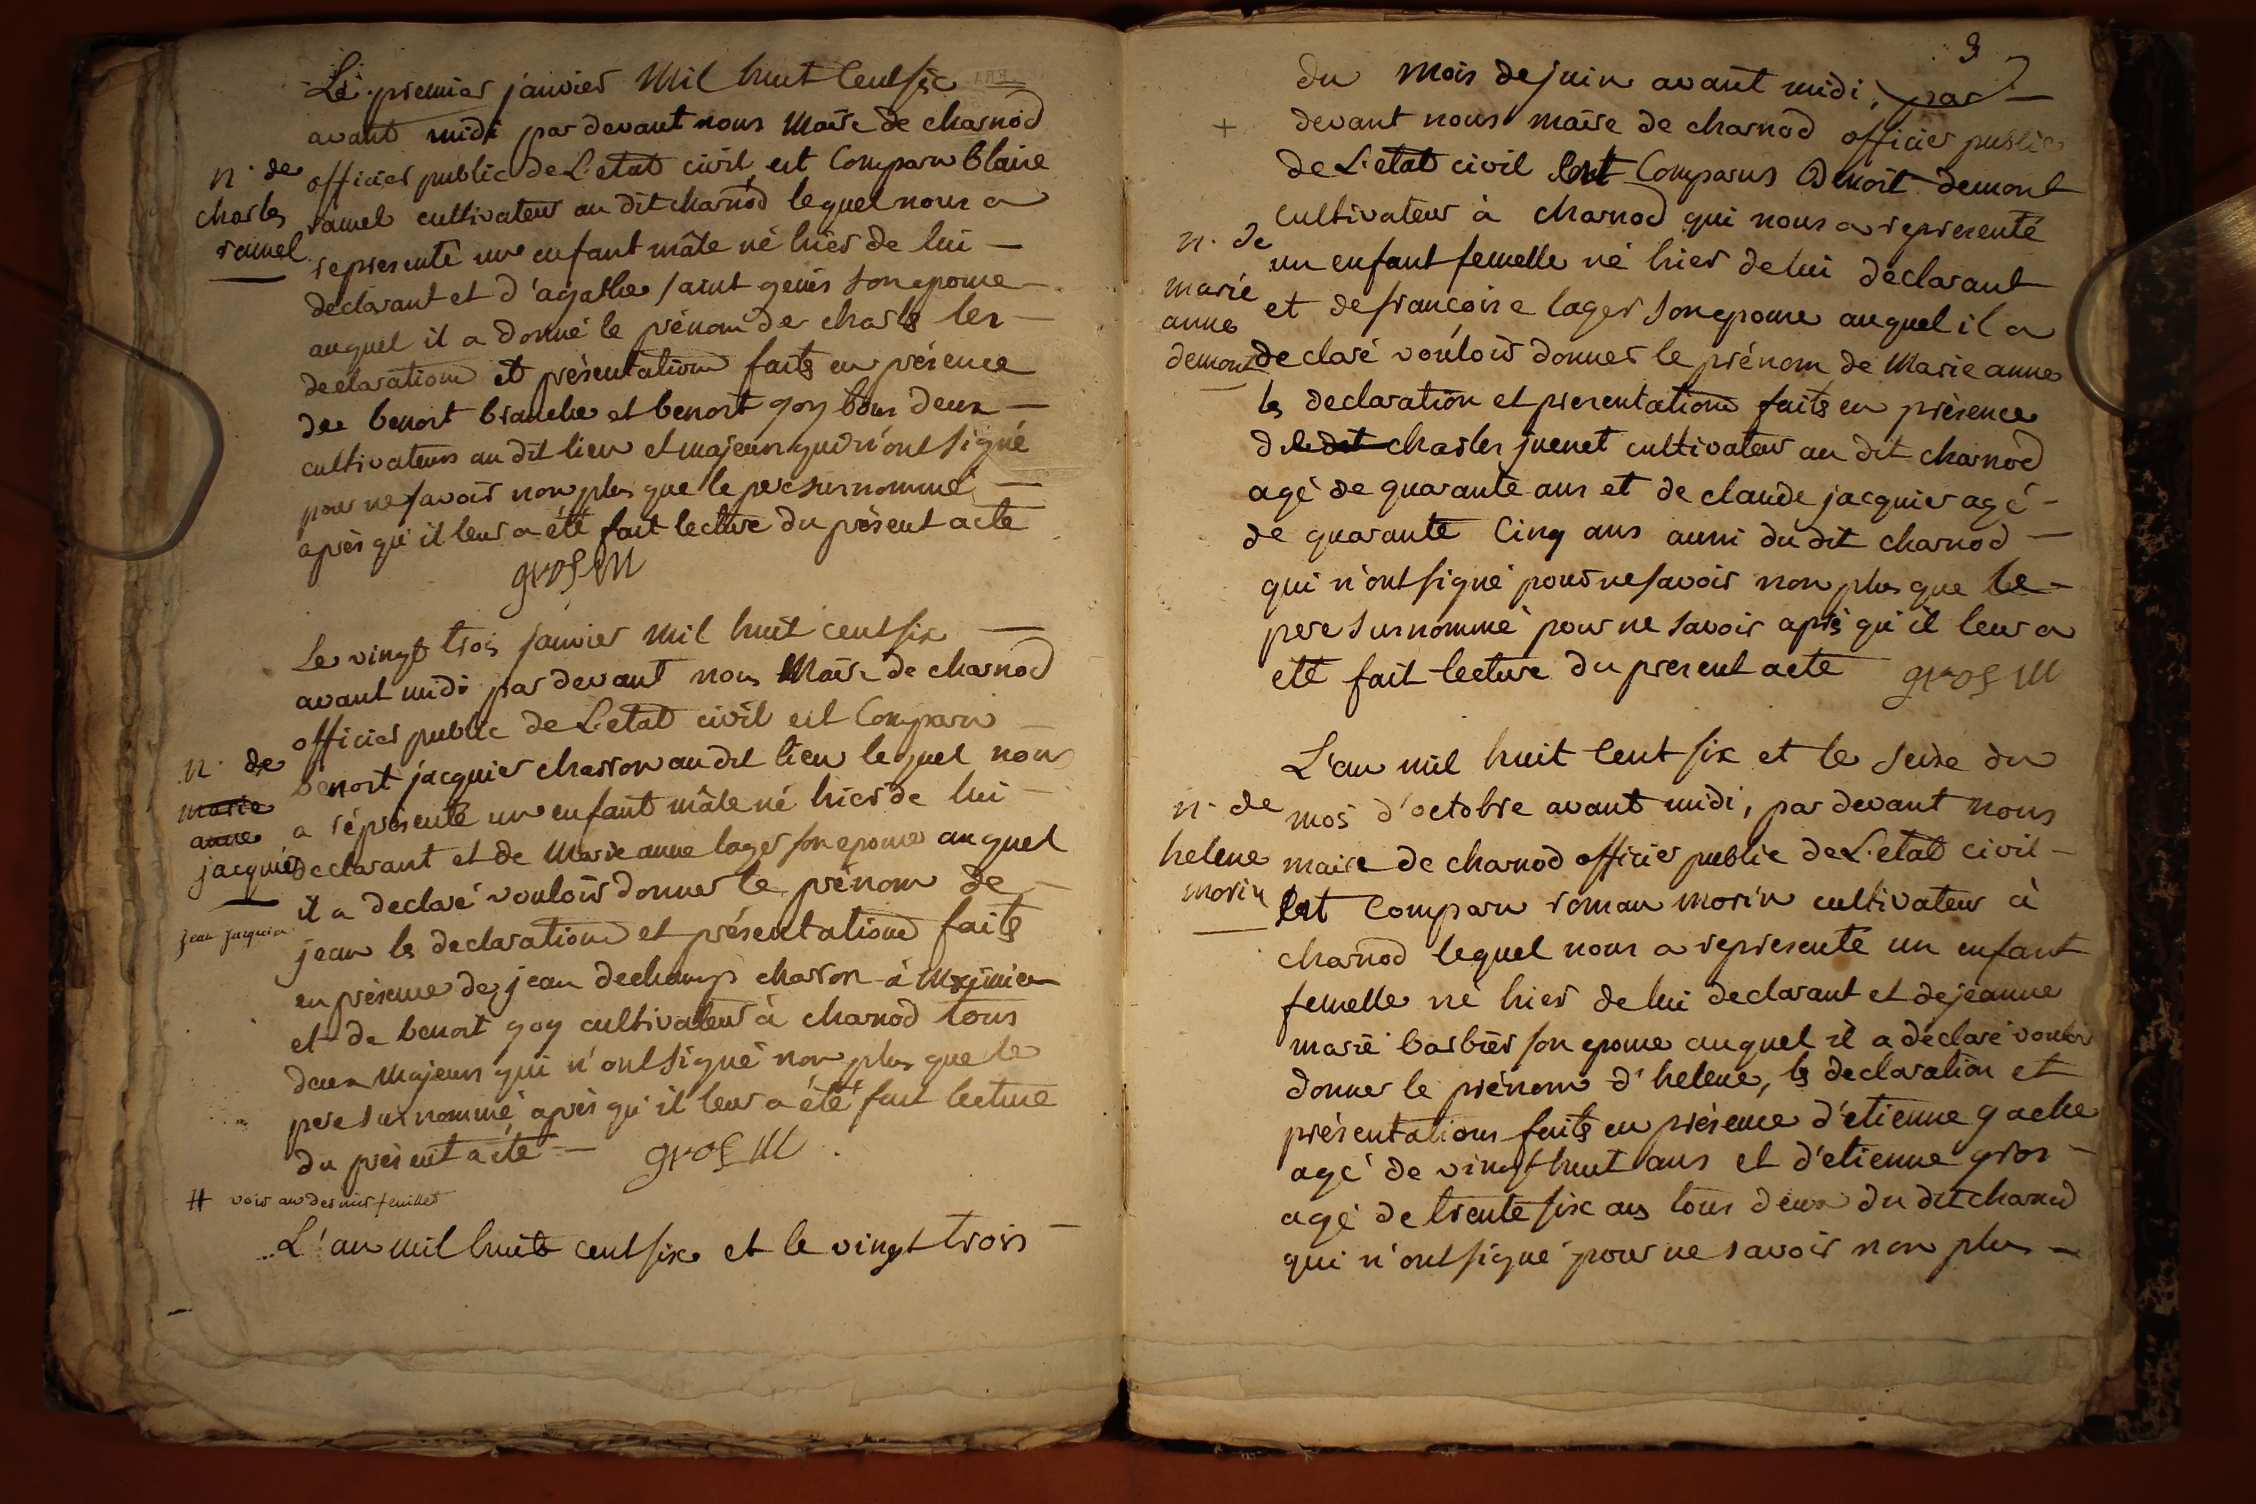 Le premier janvier mil huit cent six
avant midi par devant nous maire de charnod
n. de
charles
ramel
officier public de L'etat civil est comparu blaise
ramel cultivateur au dit charnod lequel nous a
representé un enfant mâle né hier de lui —
declarant et d'agathe saint genis son epouse —
auquel il a donné le prénom de charls les —
declaration et présentation faits en présence
de benoit branche et benoit goy tous deux —
cultivateurs au dit lieu et majeurs qui n'ont signé
pour ne savoir non plus que le pere surnommé —
après qu'il leur a été fait lecture du présent acte
gros M
Le vingt trois janvier mil huit cent six —
avant midi par devant nous Maire de charnod
officier public de L'etat civil est comparu —
n. de
marie
anne
jacquier
jean jacquier
benoit jacquier charron au dit lieu lequel nous
a réprésenté un enfant mâle né hier de lui —
declarant et de Marie anne lager son epouse auquel
il a declaré vouloir donner le prénom de —
jean ls declaration et présentation faits
en présence de jean dechamp charon à
et de benoit goy cultivateur à charnod tous
deux majeurs qui n'ont signé non plus que le
pere surnommé après qu'il leur a été fait lecture
du présent acte — gros M
# voir au dernier feuillet
L'an mil huit cent six et le vingt trois —
9
du mois de juin avant midi, par —
+ devant nous maire de charnod officier public
de L'etat civil est Comparus Benoit demont
cultivateur à charnod qui nous a representé
n. de
marie
anne
demont
un enfant femelle né hier de lui declarant
et de francoise lager son epouse auquel il a
declaré vouloir donner le prénom de Marie anne
ls declaration et presentation faits en présence
de charles juenet cultivateur au dit charnod
agé de quarante ans et de claude jacquier agé —
de quarante cinq ans aussi du dit charnod —
qui n'ont signé pour ne savoir non plus que le —
pere surnommé pour ne savoir après qu'il leur a
été fait lecture du present acte gros M
L'an mil huit cent six et le seize du
n. de
helene
morin
mois d'octobre avant midi, par devant nous
maire de charnod officier public de L'etat civil —
est comparu roman morin cultivateur à
charnod lequel nous a representé un enfant
femelle né hier de lui declarant et de jeanne
marie barbier son epouse auquel il a declaré vouloir
donner le prénom d'helene, ls declaration et
présentations faits en présence d'etienne gache
agé de vingt huit ans et d'etienne gros —
agé de trente six ans tous deux du dit charnod
qui n'ont signé pour ne savoir non plus —